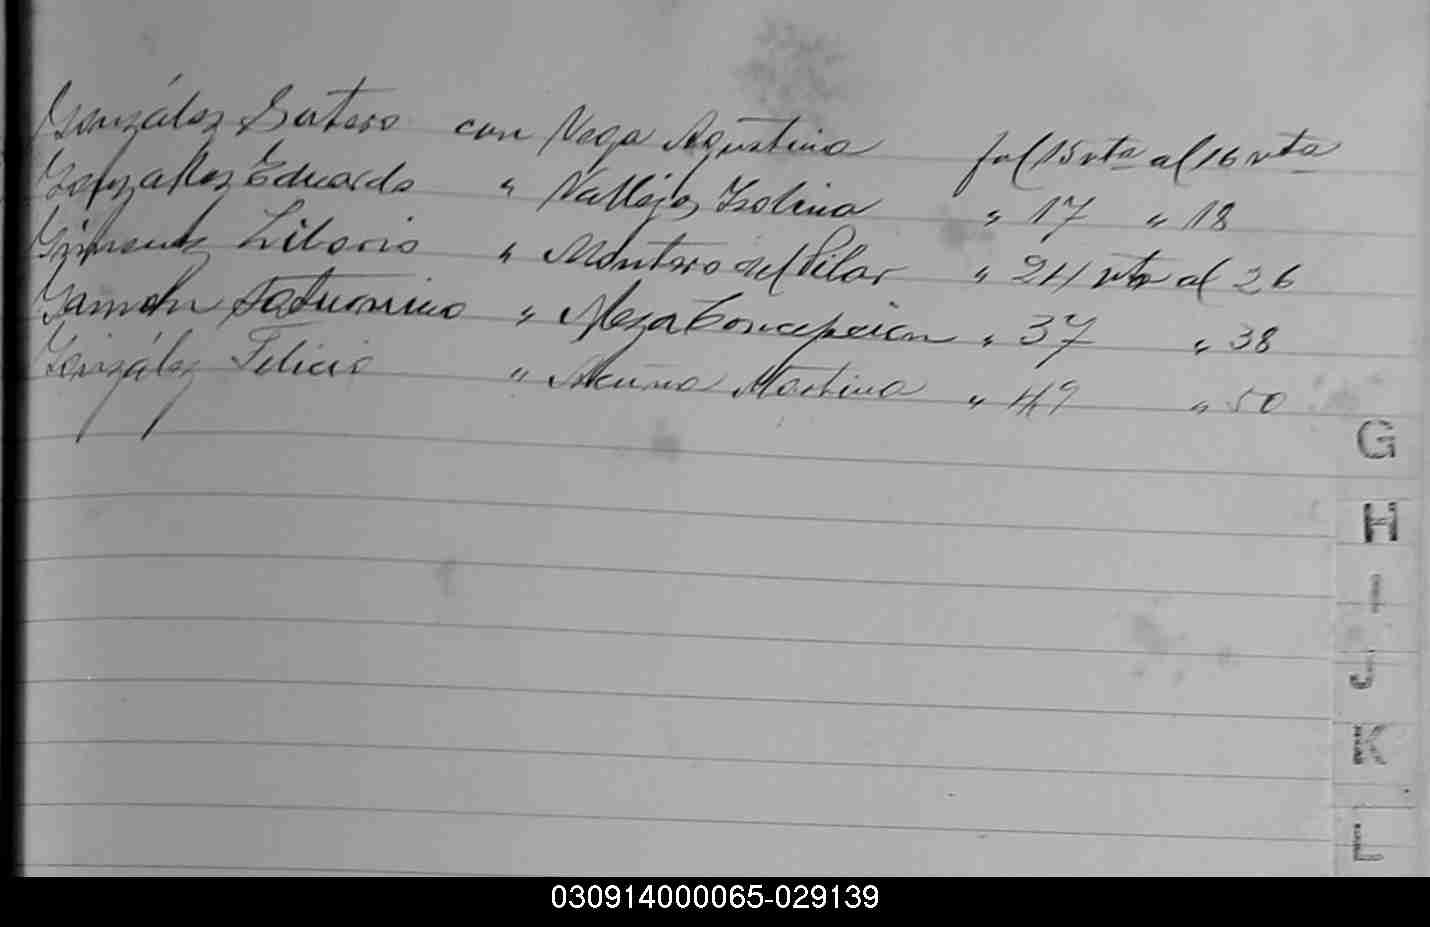 González Sotero con Vega Agustina fol 15 vta al 16 vta
González Eduardo " Vallejos Isolina " 17 " 18
Gimenez Liborio " Montero del Pilar " 24 vta al 26
Ramón " Meza Concepcion " 37 " 38
González Felicio " Acuña Martina " 49 " 50
G
H
I
J
K
L
030914000065-029139